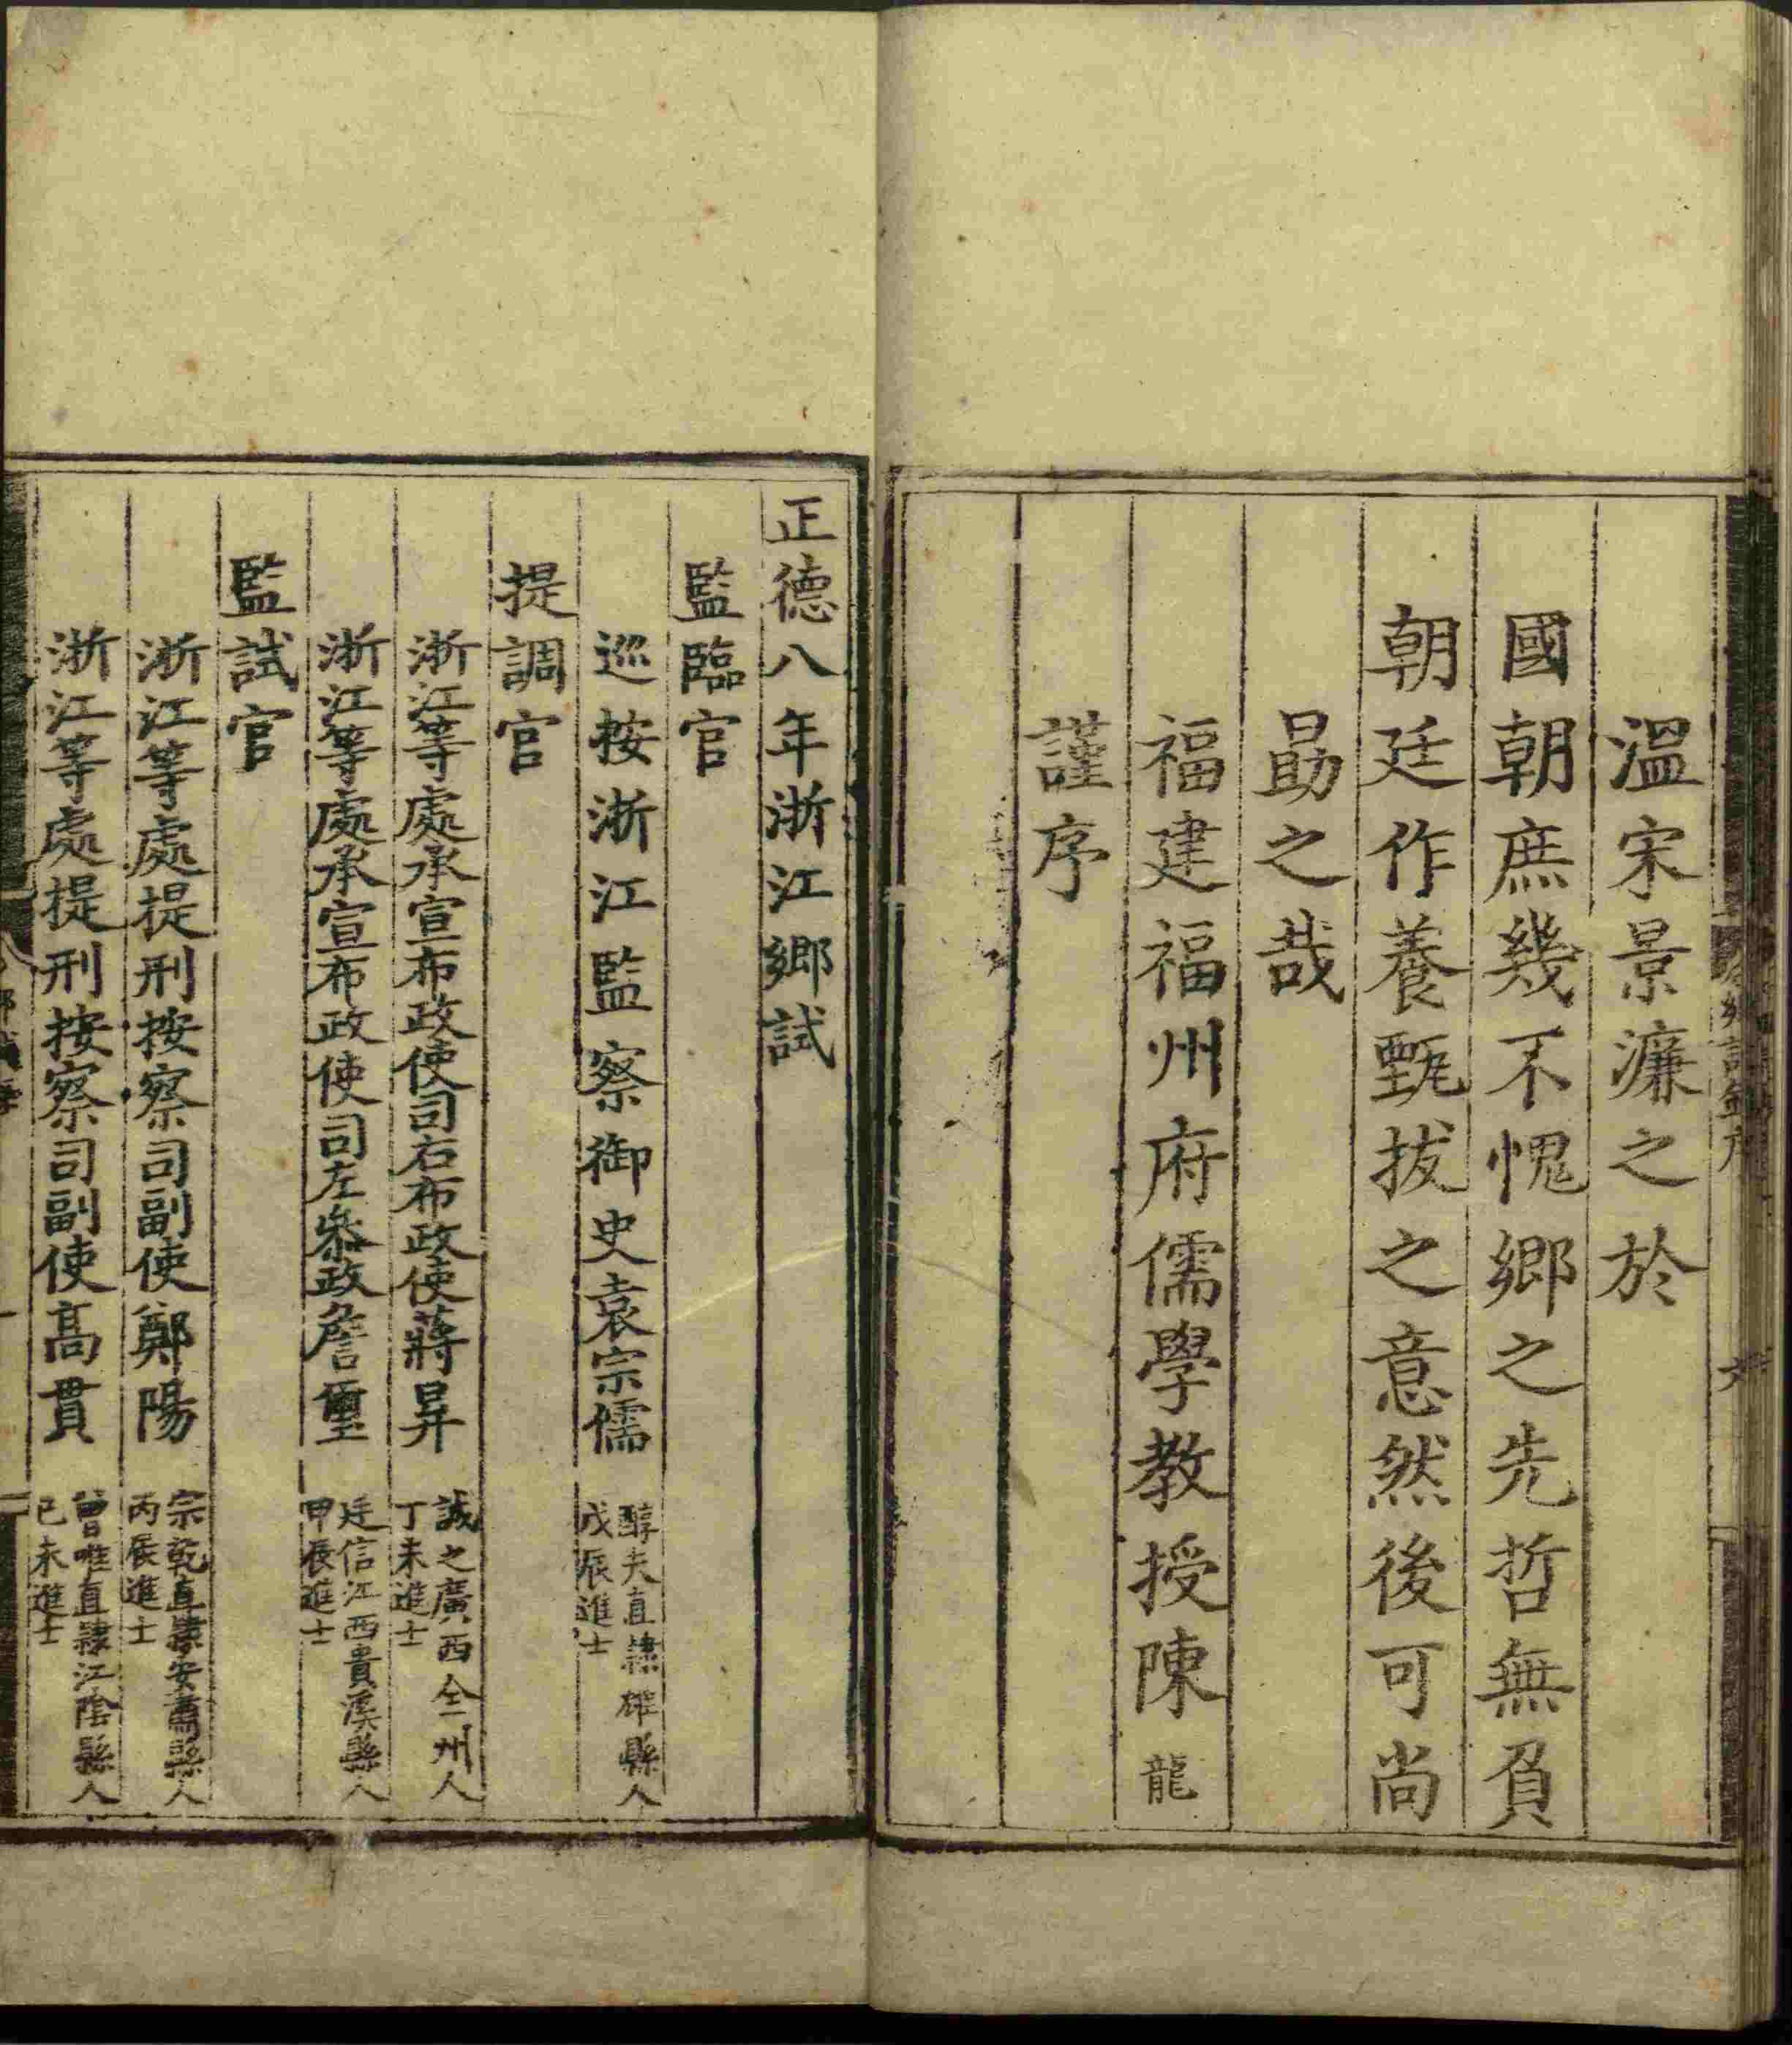 溫宋景濂之於
國朝庶幾不愧鄉之先哲無負
朝廷作養甄拔之意然後可尚
勗之哉
福建福州府儒學教授陳龍
謹序
正德八年浙江鄉試
監臨官
巡按浙江監察御史袁宗儒
醇夫直隸雄縣人
戊辰進士
提調官
浙江等處承宣布政使司右布政使蔣昇
誠之廣西全州人
丁未進士
浙江等處承宣布政使司左叅政詹璽
廷信江西貴溪縣人
甲辰進士
監試官
浙江等處提刑按察司副使鄭陽
宗乾直隸安肅縣人
丙辰進士
浙江等處提刑按察司副使高貫
曾唯直隸江陰縣人
己未進士